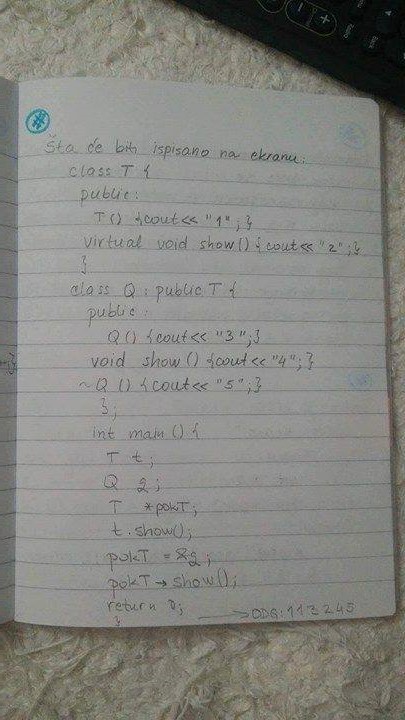 Šta će biti ispisano na ekranu:
class T {
public:
T() {cout<< "1";}
virtual void show() {cout<< "2";}
}
class Q : public T {
public :
Q() {cout<< "3";}
void show() {cout<< "4";}
~Q () {cout<< "5";}
};
int main () {
T t;
Q q;
T *pokT;
t.show();
pokT = &q;
pokT → show();
return 0;
} → ODG: 113245